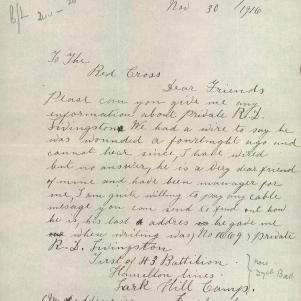 Nov 30 / 1916
To The
Red Cross
Dear Friends
Pleas can you give me any
information about Private R. L.
Livingston We had a wire to say he
was wounded a fortnught ago and
cannot hear since, I have wired
but no answer, he is a very dear friend
of mine and have been manager for
me, I am quite willing to pay any cable
message you can send to find out how
he is, his last address he gave me
when writing was, No 1069 Private
R. L. Livingston
First of 43 Battilion
Hamelton lines
Lark Hill Camp
now